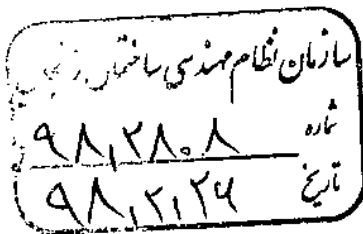 سازمان نظام مهندسی ساختمان زنجان
شماره ۹۸,۲۸۰۸
تاریخ ۹۸,۲,۲۶